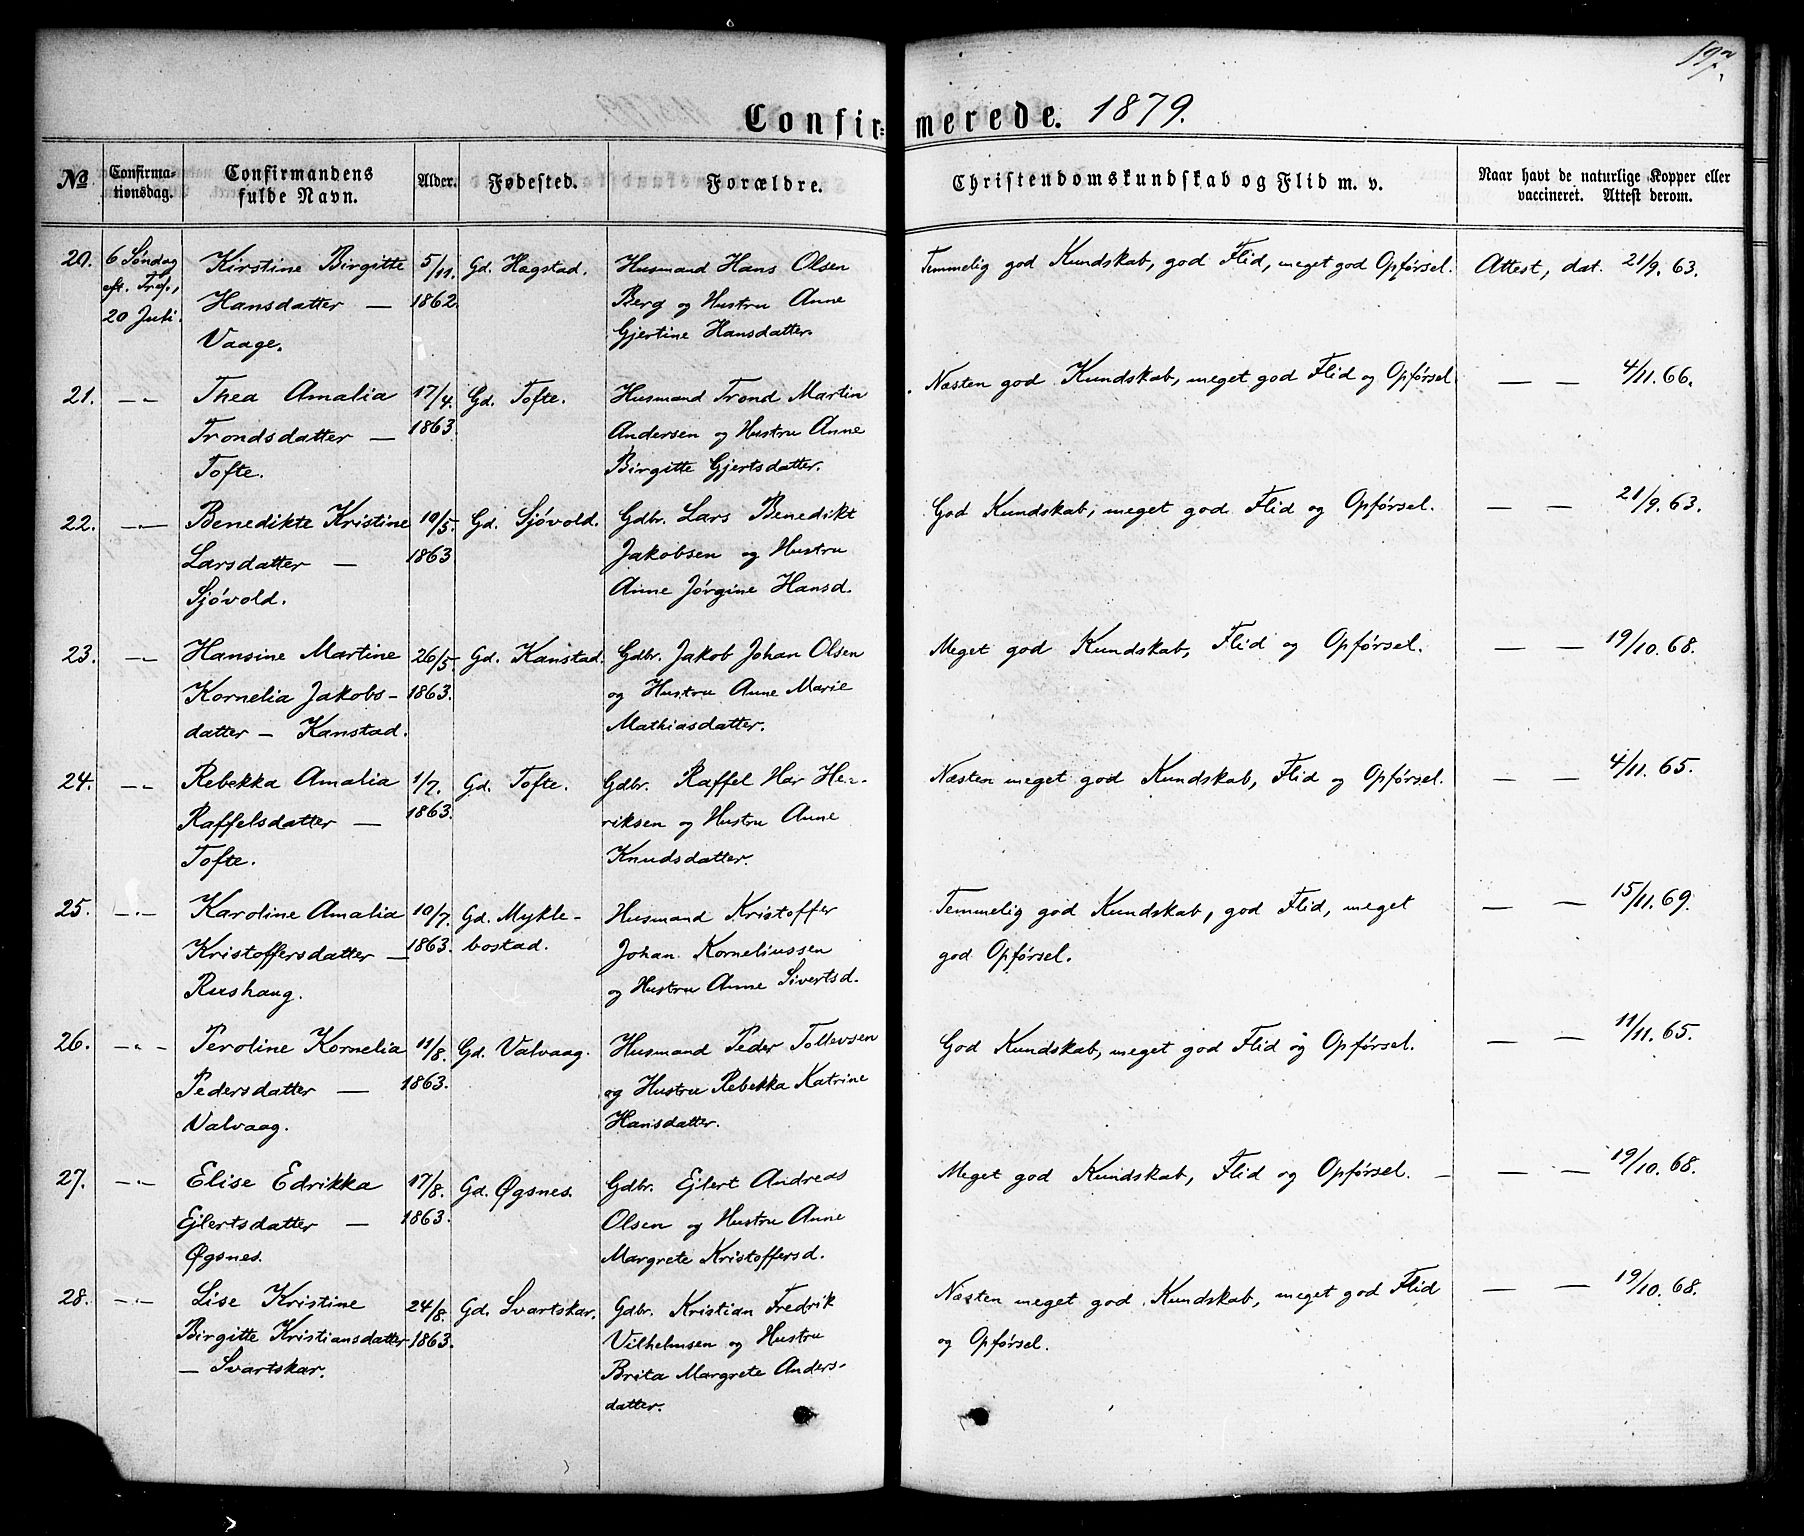 Confirmerede. 1879.
197.
No.
Confirma-
tionsdag.
Confirmandens
fulde Navn.
Alder.
Fødested.
Forældre.
Christendomskundskab og Flid m. v.
Naar havt de naturlige Kopper eller
vaccineret. Attest derom.
20. 6 Søndag Kirstine Birgitte 5/11. Gd. Hagstad. Husmand Hans Olsen Temmelig god Kundskab, god Flid, meget god Opførsel. Attest, dat. 21/9. 63.
eft. Tref., Hansdatter — 1862. Berg og Hustru Anne
20 Juli. Vaage. Gjertine Hansdatter.
21. —"— Thea Amalia 17/4. Gd. Tofte. Husmand Trond Martin Næsten god Kundskab, meget god Flid og Opførsel. — — 4/11. 66.
Trondsdatter — 1863. Andersen og Hustru Anne
Tofte. Birgitte Gjertsdatter.
22. —"— Benedikte Kristine 10/5. Gd. Sjøvold. Gdbr. Lars Benedikt God Kundskab, meget god Flid og Opførsel. — — 21/9. 63.
Larsdatter — 1863 Jakobsen og Hustru
Sjøvold. Anne Jørgine Hansd.
23. —"— Hansine Martine 26/5. Gd. Kanstad. Gdbr. Jakob Johan Olsen Meget god Kundskab, Flid og Opførsel. — — 19/10. 68.
Kornelia Jakobs- 1863. og Hustru Anne Marie
datter — Kanstad. Mathiasdatter.
24. —"— Rebekka Amalia 1/7. Gd. Tofte. Gdbr. Raffel Hær Hen- Næsten meget god Kundskab, Flid og Opførsel. — — 4/11. 65.
Raffelsdatter — 1863. riksen og Hustru Anne
Tofte. Knudsdatter.
25. —"— Karoline Amalia 10/7. Gd. Mykle- Husmand Kristoffer Temmelig god Kundskab, god Flid, meget — — 15/11. 69.
Kristoffersdatter — 1863. bostad. Johan Korneliussen god Opførsel.
Rushaug. og Hustru Anne Sivertsd.
26. —"— Peroline Kornelia 11/8. Gd. Valvaag. Husmand Peder Tollevsen God Kundskab, meget god Flid og Opførsel. — — 11/11. 65.
Pedersdatter — 1863. og Hustru Rebekka Katrine
Valvaag. Hansdatter.
27. —"— Elise Edrikka 17/8. Gd. Øgsnes. Gdbr. Ejlert Andreas Meget god Kundskab, Flid og Opførsel. — — — 19/10. 68.
Ejlertsdatter — 1863. Olsen og Hustru Anne
Øgsnes. Margrete Kristoffersd.
28. —"— Lise Kristine 24/8. Gd. Svartskar. Gdbr. Kristian Fredrik Næsten meget god Kundskab, meget god Flid — — 19/10. 68.
Birgitte Kristiansdatter 1863. Vilhelmsen og Hustru og Opførsel.
— Svartskar. Brita Margrete Anders-
datter.